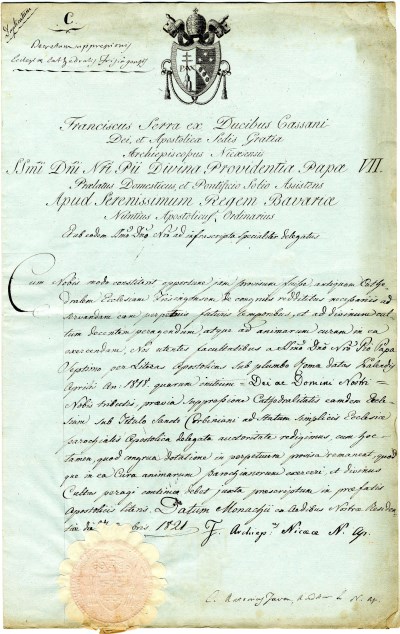 C
Decretum suppressionis
Ecclesiæ Cathedralis Frisingensis
PAX
Franciscus Serra ex Ducibus Cassani
Dei, et Apostolicæ Sedis Gratia
Archiepiscopus Nicænsis
SSmi Dni Nri Pii Divina Providentia Papæ VII.
Prælatus Domesticus, et Pontificio Solio Assistens
Apud Serenissimum Regem Bavariæ
Nuntius Apostolicus, Ordinarius
Et ab eodem SSmo Dno Nro ad infrascripta specialiter delegatus
Cum Nobis modo constiterit opportune jam provisum fuisse antiquam Cathe-
dralem Ecclesiam Frisingensem de congruis redditibus necessariis ad
servandam eam perpetuis futuris temporibus, et ad divinum cul-
tum decenter peragendum atque ad animarum curam in ea
exercendam, Nos utentes facultatibus a SSmo Dno Nro Pio Papa
Septimo per Literas Apostolicas sub plumbo Romæ datas Kalendis
Aprilis An. 1818. quarum initium = Dei ac Domini Nostri =
Nobis tributis, prævia suppressione Cathedralitatis eamdem Eccle-
siam sub Titulo Sancti Corbiniani ad Statum simplicis Ecclesiæ
parochialis Apostolica delegata auctoritate redigimus, cum hoc
tamen, quod congrua dotatione in perpetuum provisa remaneat, quod-
que in ea Cura animarum parochianorum exerceri, et divinus
Cultus peragi continuo debet juxta præscriptum in præfatis
Apostolicis literis. Datum Monachii ex Ædibus Nostræ Residen-
tiæ die 1821
F. Archiep. Nicææ N. Ap.